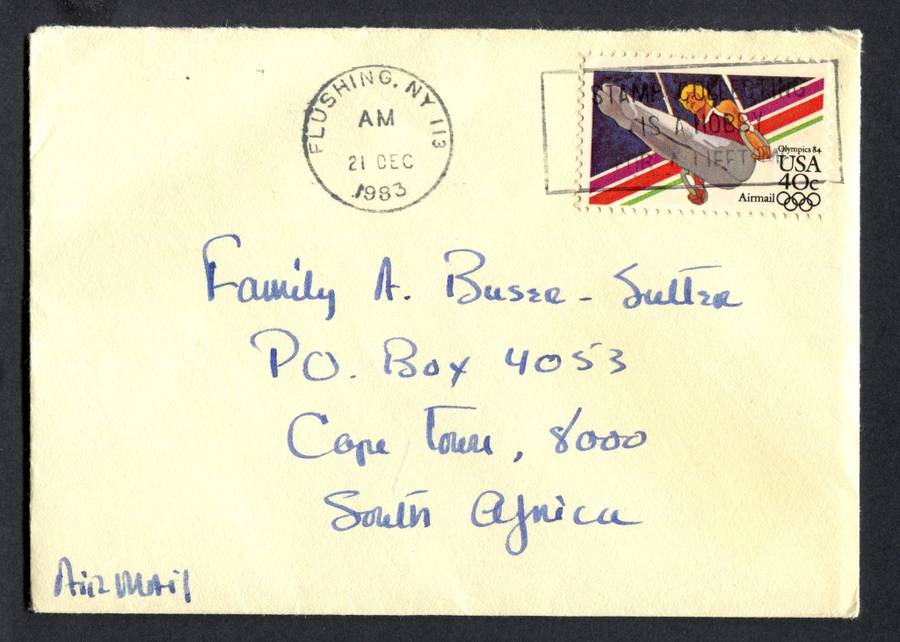 FLUSHING, NY 113
AM
21 DEC
1983
STAMP COLLECTING
IS A HOBBY
FOR A LIFETIME
Olympics 84
USA
40c
Airmail
Family A. Buser - Sutter
PO. Box 4053
Cape Town, 8000
South Africa
Air Mail